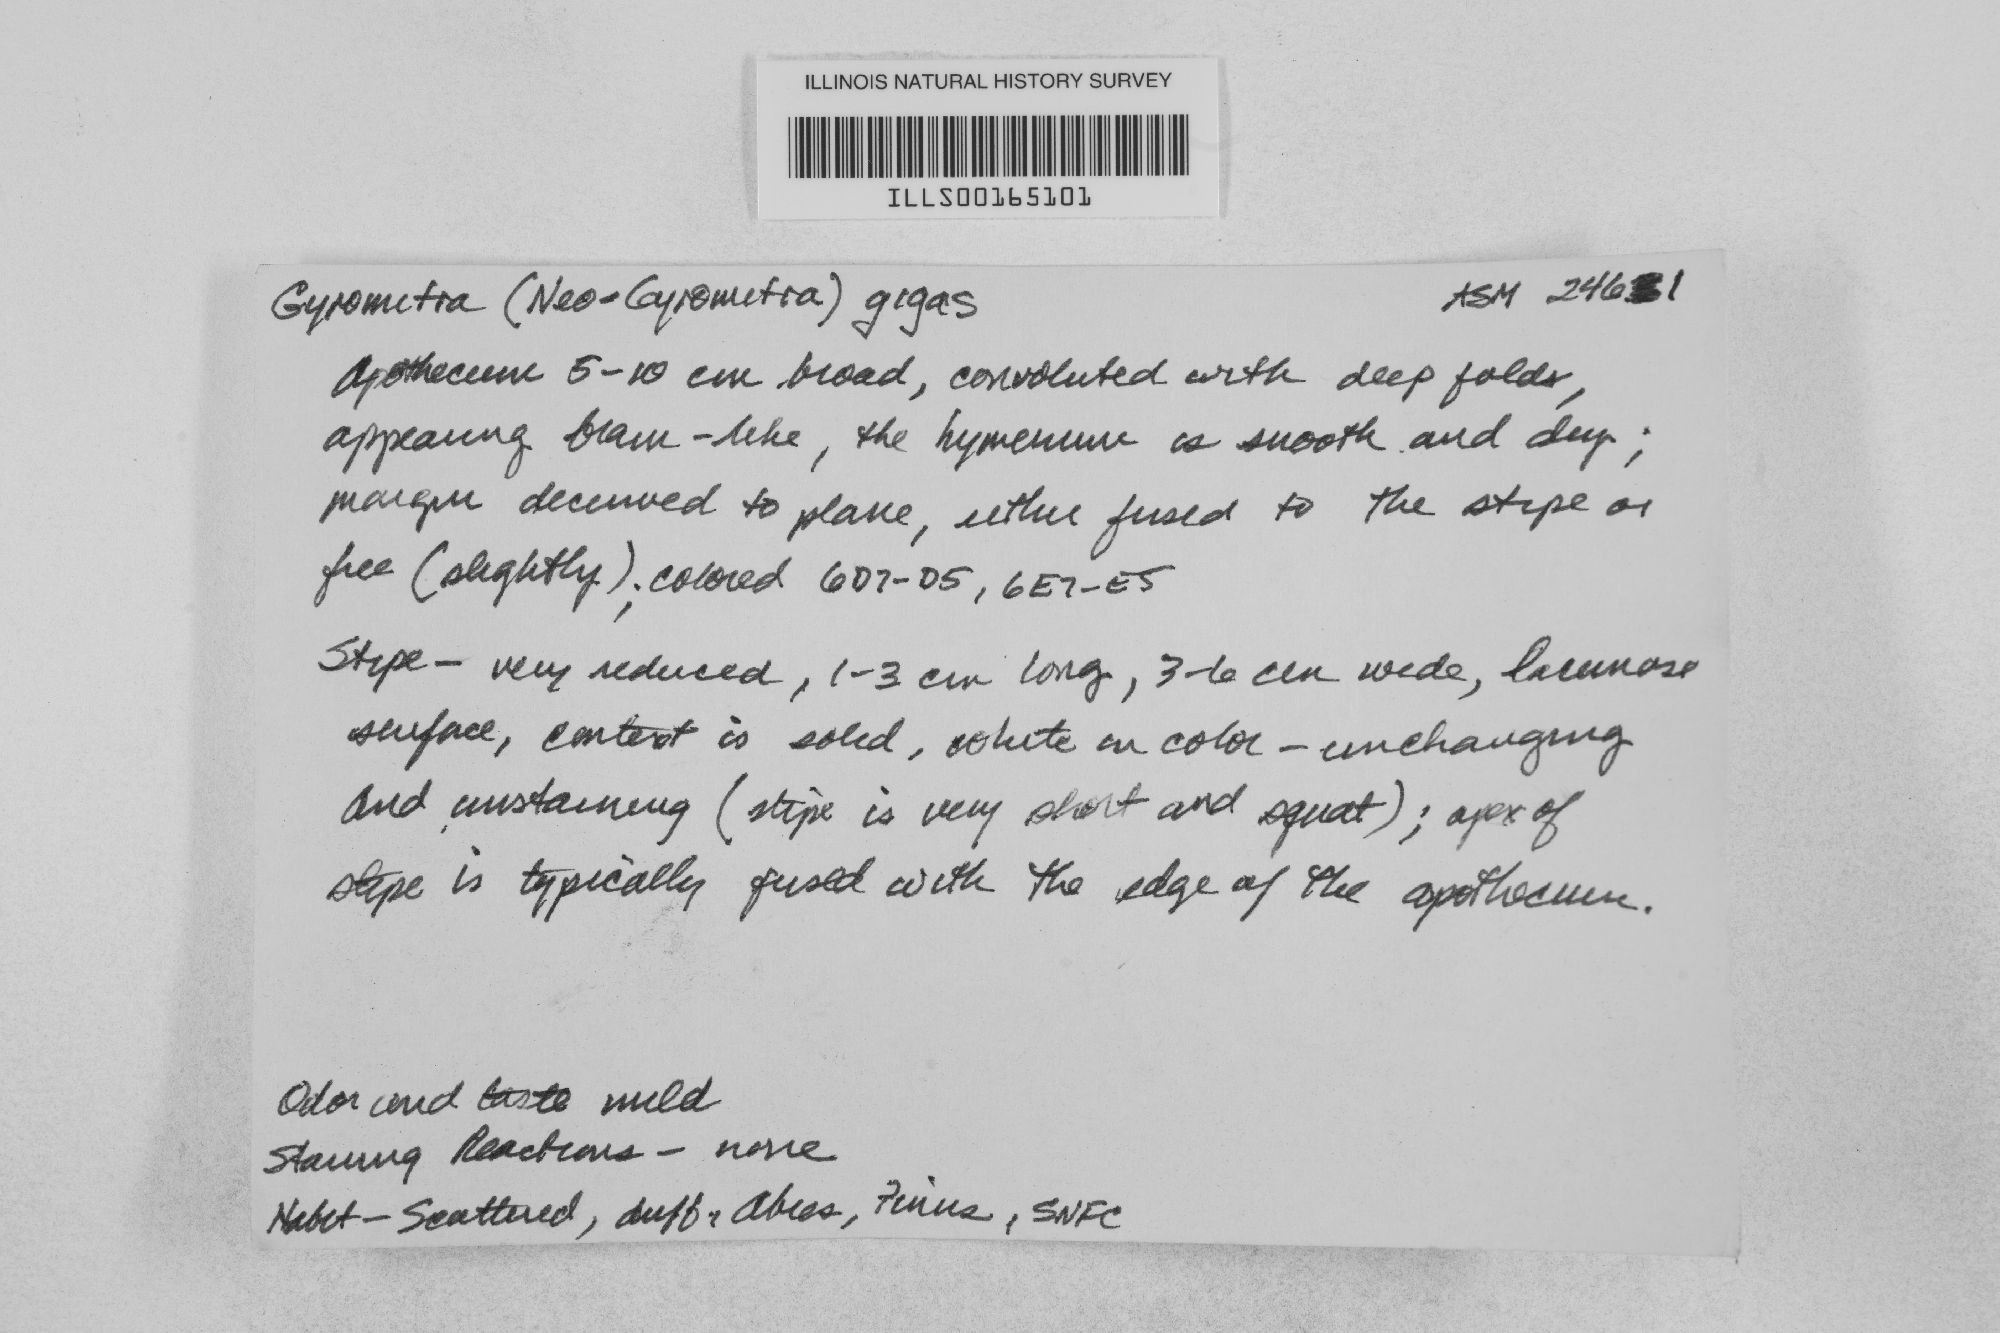 ILLINOIS NATURAL HISTORY SURVEY
ILLS00165101
Gyromitra (Neo-Gyromitra) gigas
ASM 24631
Apothecium 5-10 cm broad, convoluted with deep folds,
appearing brain-like, the hymenium is smooth and dry;
margin decurved to plane, either fused to the stipe or
free (slightly); colored 6D7-D5, 6E7-E5
Stipe - very reduced, 1-3 cm long, 3-6 cm wide, lacunose
surface, context is solid, white in color - unchanging
and unstaining (stipe is very short and squat); apex of
stipe is typically fused with the edge of the apothecium.
Odor and taste mild
Staining Reactions - none
Habit - Scattered, duff, Abies, Pinus, SNFC